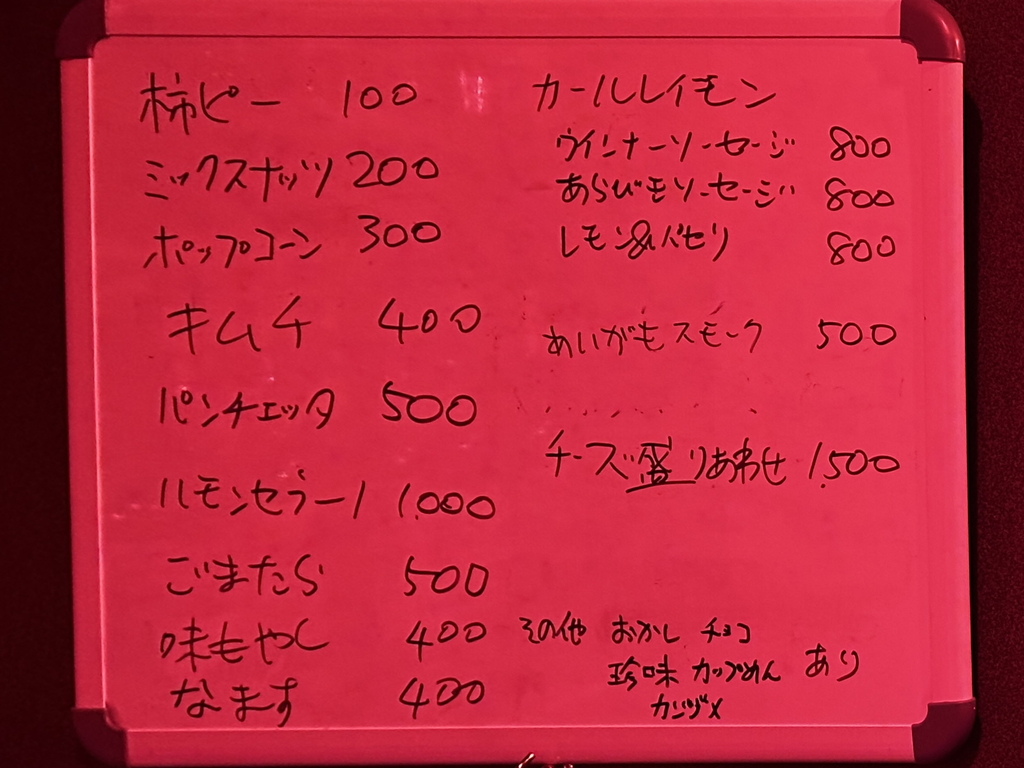 柿ピー 100
ミックスナッツ 200
ポップコーン 300
キムチ 400
パンチェッタ 500
ハモンセラーノ 1,000
ごまたら 500
味もやし 400
なます 400
カールレイモン
ウインナーソーセージ 800
あらびきソーセージ 800
レモン&パセリ 800
あいがもスモーク 500
チーズ盛りあわせ 1,500
その他 おかし チョコ
珍味 カップめん あり
カンヅメ